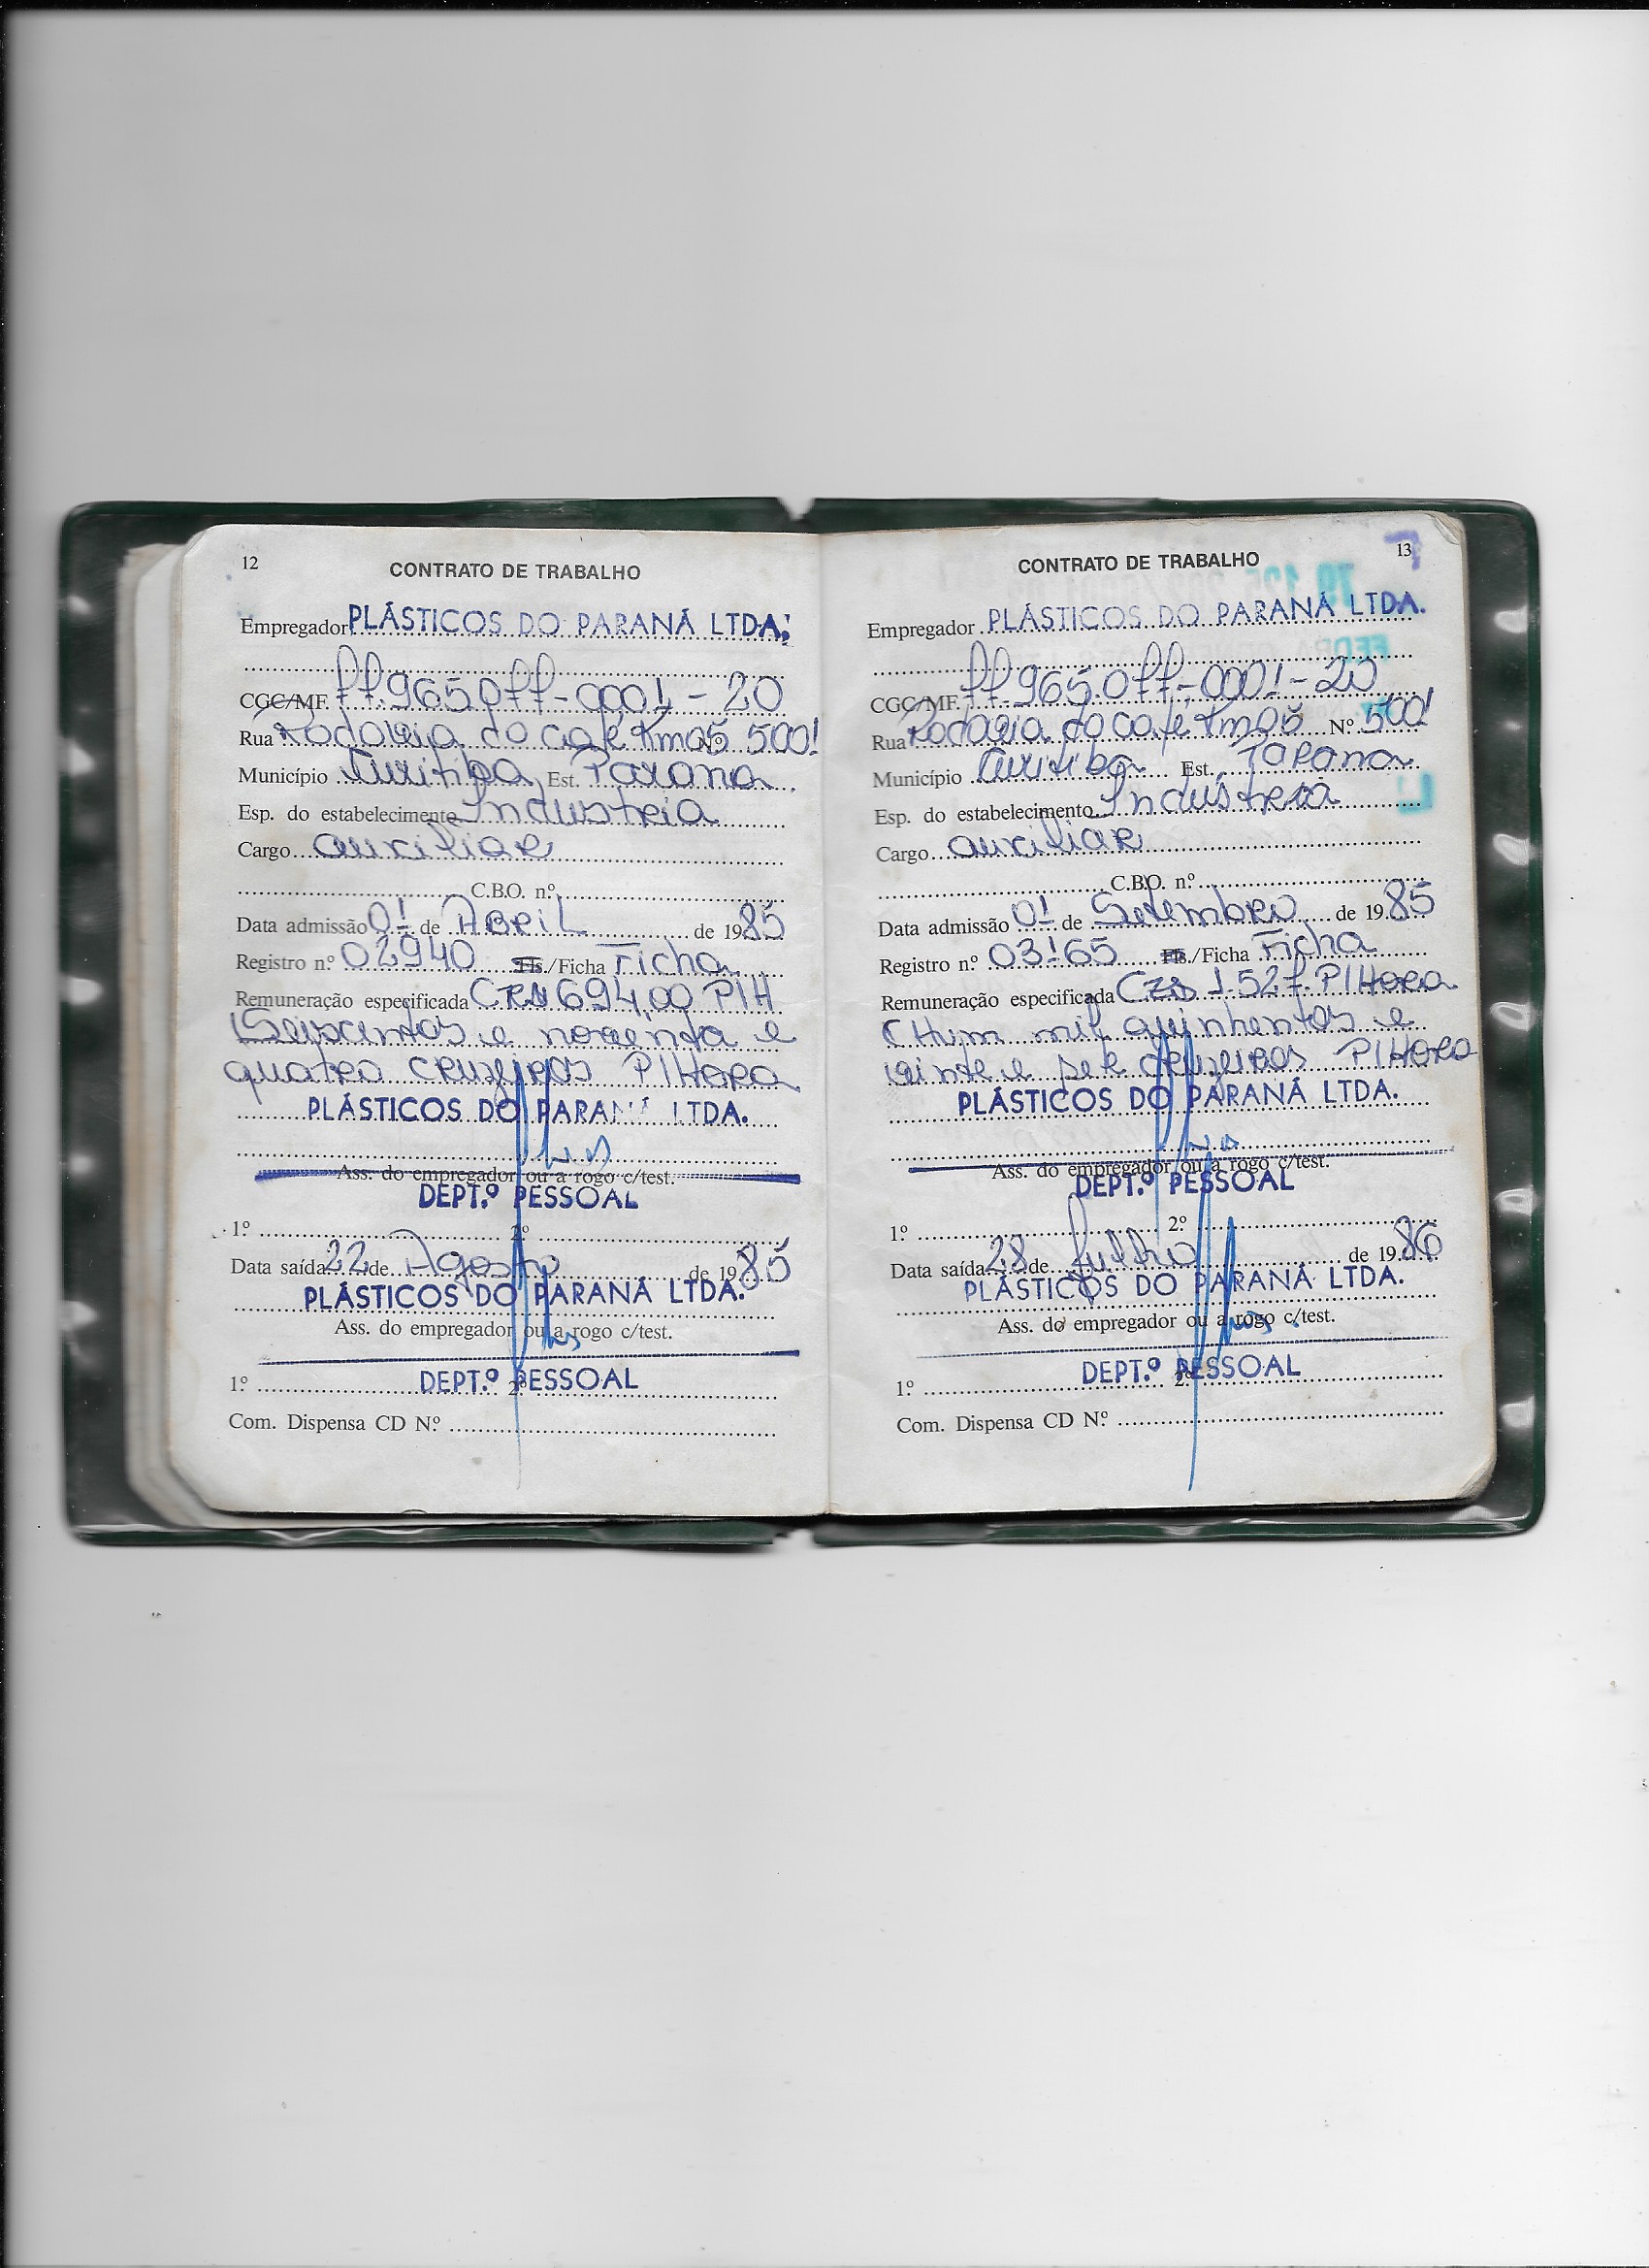 12
CONTRATO DE TRABALHO
Empregador PLÁSTICOS DO PARANÁ LTDA.
CGC/MF. 77.965.077-0001-20
Rua Rodovia do café Km 05 Nº 5001
Município Curitiba Est. Parana
Esp. do estabelecimento Industria
Cargo auxiliar
C.B.O. nº
Data admissão 01 de Abril de 1985
Registro n.º 02940 Fls./Ficha Ficha
Remuneração especificada CR$ 694,00 P/H
(Seiscentos e noventa e
quatro cruzeiros P/Hora
PLÁSTICOS DO PARANÁ LTDA.
Ass. do empregador ou a rogo c/test.
DEPT.º PESSOAL
1.º 2.º
Data saída 22 de Agosto de 1985
PLÁSTICOS DO PARANÁ LTDA.
Ass. do empregador ou a rogo c/test.
DEPT.º PESSOAL
1.º 2.º
Com. Dispensa CD N.º
13
CONTRATO DE TRABALHO
Empregador PLÁSTICOS DO PARANÁ LTDA.
CGC/MF. 77.965.077-0001-20
Rua Rodovia do café Km 05 N.º 5001
Município Curitiba Est. Parana
Esp. do estabelecimento Indústria
Cargo auxiliar
C.B.O. n.º
Data admissão 01 de Setembro de 1985
Registro n.º 03165 Fls./Ficha Ficha
Remuneração especificada CZ$ 1.527. P/Hora
(Hum mil quinhentos e
vinte e sete cruzeiros P/Hora
PLÁSTICOS DO PARANÁ LTDA.
Ass. do empregador ou a rogo c/test.
DEPT.º PESSOAL
1.º 2.º
Data saída 28 de Julho de 1986
PLÁSTICOS DO PARANÁ LTDA.
Ass. do empregador ou a rogo c/test.
DEPT.º PESSOAL
1.º 2.º
Com. Dispensa CD N.º